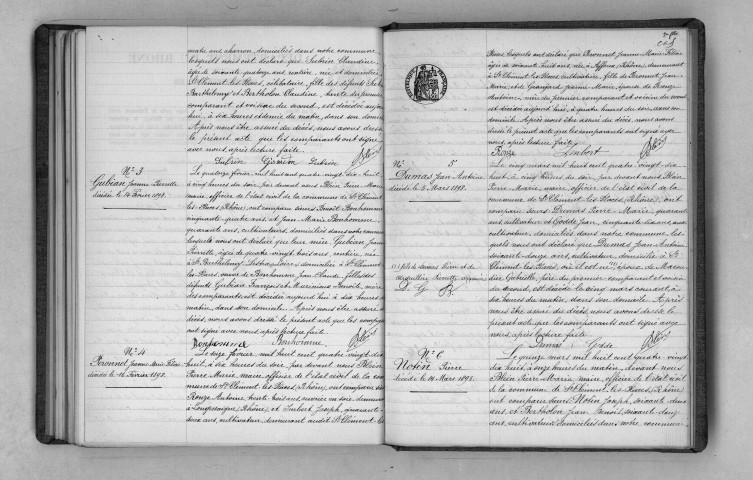 maire
domiciliés dans notre commune
lesquels nous ont déclaré que Subrin Claudine,
âgée de soixante quatorze ans, rentière, née et domiciliée
St Clément les Places, célibataire, fille des défunts Subrin
Barthélemy et Bertholon Claudine,
comparant et voisine du second, est décédée aujourd
hui, à six heures et demie du matin, dans son domi
Après nous être assuré du décès, nous avons dressé
le présent acte que les comparants ont signé
avec nous, après lecture faite.
Subrin
Subrin
N° 3
Gubian Jeanne Pierrette
décédée le 14 février 1898.
Le quatorze février, mil huit cent quatre vingt dix huit, à
cinq heures du soir, par devant nous Blein Pierre Marie
maire, officier de l'état civil de la commune de St Clément
les Places (Rhône), ont comparu sieurs Benoît Bonhomme
cinquante quatre ans, et Jean Marie Bonhomme,
quarante ans, cultivateurs, domiciliés dans notre commune
lesquels nous ont déclaré que leur mère Gubian Jeanne
Pierrette, âgée de quatre vingt trois ans, rentière, née
à St Barthélemy
domiciliée à St Clément
les Places, veuve de Bonhomme Jean Claude, fille des
défunts Gubian François et
Benoîte, mère
des comparants est décédée aujourd'hui à dix heures du
matin, dans son domicile. Après nous être assuré du
décès, nous avons dressé le présent acte que les compa
ont signé avec nous, après lecture faite
Bonhomme Bonhomme
N° 4
Peronnet Jeanne Marie
décédée le 16 Février 1898.
février, mil huit cent quatre vingt dix
huit, à six heures du soir, par devant nous Blein
Pierre Marie, maire, officier de l'état civil de la com
mune de St Clément les Places (Rhône), ont comparu
Rouze Antoine,
à Longessaigne (Rhône), et Imbert Joseph, quarante
deux ans, cultivateur, demeurant audit St Clément les
Places, lesquels ont déclaré que Peronnet Jeanne Marie
âgée de soixante huit ans, née à Affoux (Rhône), demeurant
à St Clément les Places, cultivatrice, fille de Peronnet Jean
Marie, et de
épouse de Rouze
Antoine, mère du premier comparant et voisine du second
est décédée aujourd'hui, à quatre heures du soir, dans son
domicile. Après nous être assuré du décès, nous avons dressé
le présent acte que les comparants ont signé avec
nous, après lecture faite
Rouze Imbert
N° 5
Dumas Jean Antoine
décédé le 5 Mars 1898.
Le cinq mars mil huit cent quatre vingt dix
huit, à cinq heures du soir, par devant nous Blein
Pierre Marie, maire, officier de l'état civil de la
commune de St Clément les Places (Rhône), ont
comparu sieurs Dumas Pierre Marie, quarante
ans, cultivateur et Godde Jean, cinquante
ans
cultivateur, domiciliés dans notre commune, les
quels nous ont déclaré que Dumas Jean Antoine
soixante douze ans, cultivateur, domicilié à St
Clément les Places, où il est né, époux de
Gabrielle, père du premier comparant et voisin
du second, est décédé le cinq mars courant, à
six heures du matin, dans son domicile. Après
nous être assuré du décès, nous avons dressé le
présent acte que les comparants ont signé avec
nous, après lecture faite
Dumas Godde
N° 6
Notin Pierre
décédé le 14 Mars 1898.
Le quinze mars mil huit cent quatre vingt
dix huit, à onze heures du matin, devant nous
Blein Pierre Marie, maire, officier de l'état civil
de la commune de St Clément les Places (Rhône)
ont comparu sieurs Notin Joseph, soixante deux
ans, et Bertholon Jean Benoît, soixante
ans, cultivateurs domiciliés dans notre commune